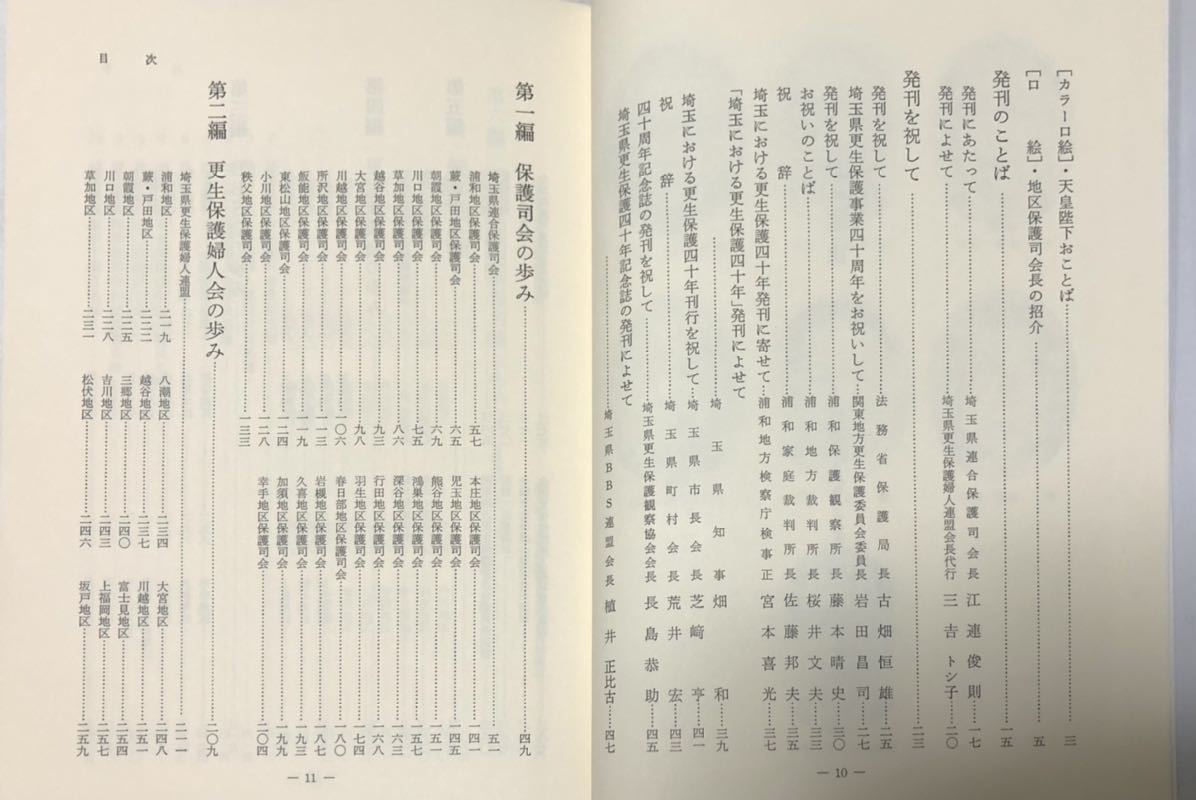 [カラー口絵]・天皇陛下おことば……三
[口　絵]・地区保護司会長の紹介……五
発刊のことば……一五
発刊にあたって……埼玉県連合保護司会長　江連俊則……一七
発刊によせて……埼玉県更生保護婦人連盟会長代行　三吉トシ子……二〇
発刊を祝して……二三
発刊を祝して……法務省保護局長　古畑恒雄……二五
埼玉県更生保護事業四十周年をお祝いして……関東地方更生保護委員会委員長　岩田昌司……二七
発刊を祝して……浦和保護観察所長　藤本晴史……三〇
お祝いのことば……浦和地方裁判所長　桜井文夫……三三
祝　辞……浦和家庭裁判所長　佐藤邦夫……三五
埼玉における更生保護四十年発刊に寄せて……浦和地方検察庁検事正　宮本喜光……三七
「埼玉における更生保護四十年」発刊によせて
……埼玉県知事　畑　和……三九
埼玉における更生保護四十年刊行を祝して……埼玉県市長会長　芝﨑　亨……四一
祝　辞……埼玉県町村会長　荒井　宏……四三
四十周年記念誌の発刊を祝して……埼玉県更生保護観察協会会長　長島恭助……四五
埼玉県更生保護四十年記念誌の発刊によせて
……埼玉県BBS連盟会長　植井正比古……四七
― 10 ―
目　次
第一編　保護司会の歩み……四九
埼玉県連合保護司会……五一
浦和地区保護司会……五七
蕨・戸田地区保護司会……六五
朝霞地区保護司会……六九
川口地区保護司会……七五
草加地区保護司会……八六
越谷地区保護司会……九三
大宮地区保護司会……九八
川越地区保護司会……一〇六
所沢地区保護司会……一一三
飯能地区保護司会……一一九
東松山地区保護司会……一二四
小川地区保護司会……一二八
秩父地区保護司会……一三三
本庄地区保護司会……一四一
児玉地区保護司会……一四五
熊谷地区保護司会……一五一
鴻巣地区保護司会……一五七
深谷地区保護司会……一六三
行田地区保護司会……一六八
羽生地区保護司会……一七四
春日部地区保護司会……一八〇
岩槻地区保護司会……一八七
久喜地区保護司会……一九三
加須地区保護司会……一九九
幸手地区保護司会……二〇四
第二編　更生保護婦人会の歩み……二〇九
埼玉県更生保護婦人連盟……二一一
浦和地区……二一九
蕨・戸田地区……二二二
朝霞地区……二二五
川口地区……二二八
草加地区……二三一
八潮地区……二三四
越谷地区……二三七
三郷地区……二四〇
吉川地区……二四三
松伏地区……二四六
大宮地区……二四八
川越地区……二五一
富士見地区……二五四
上福岡地区……二五七
坂戸地区……二五九
― 11 ―